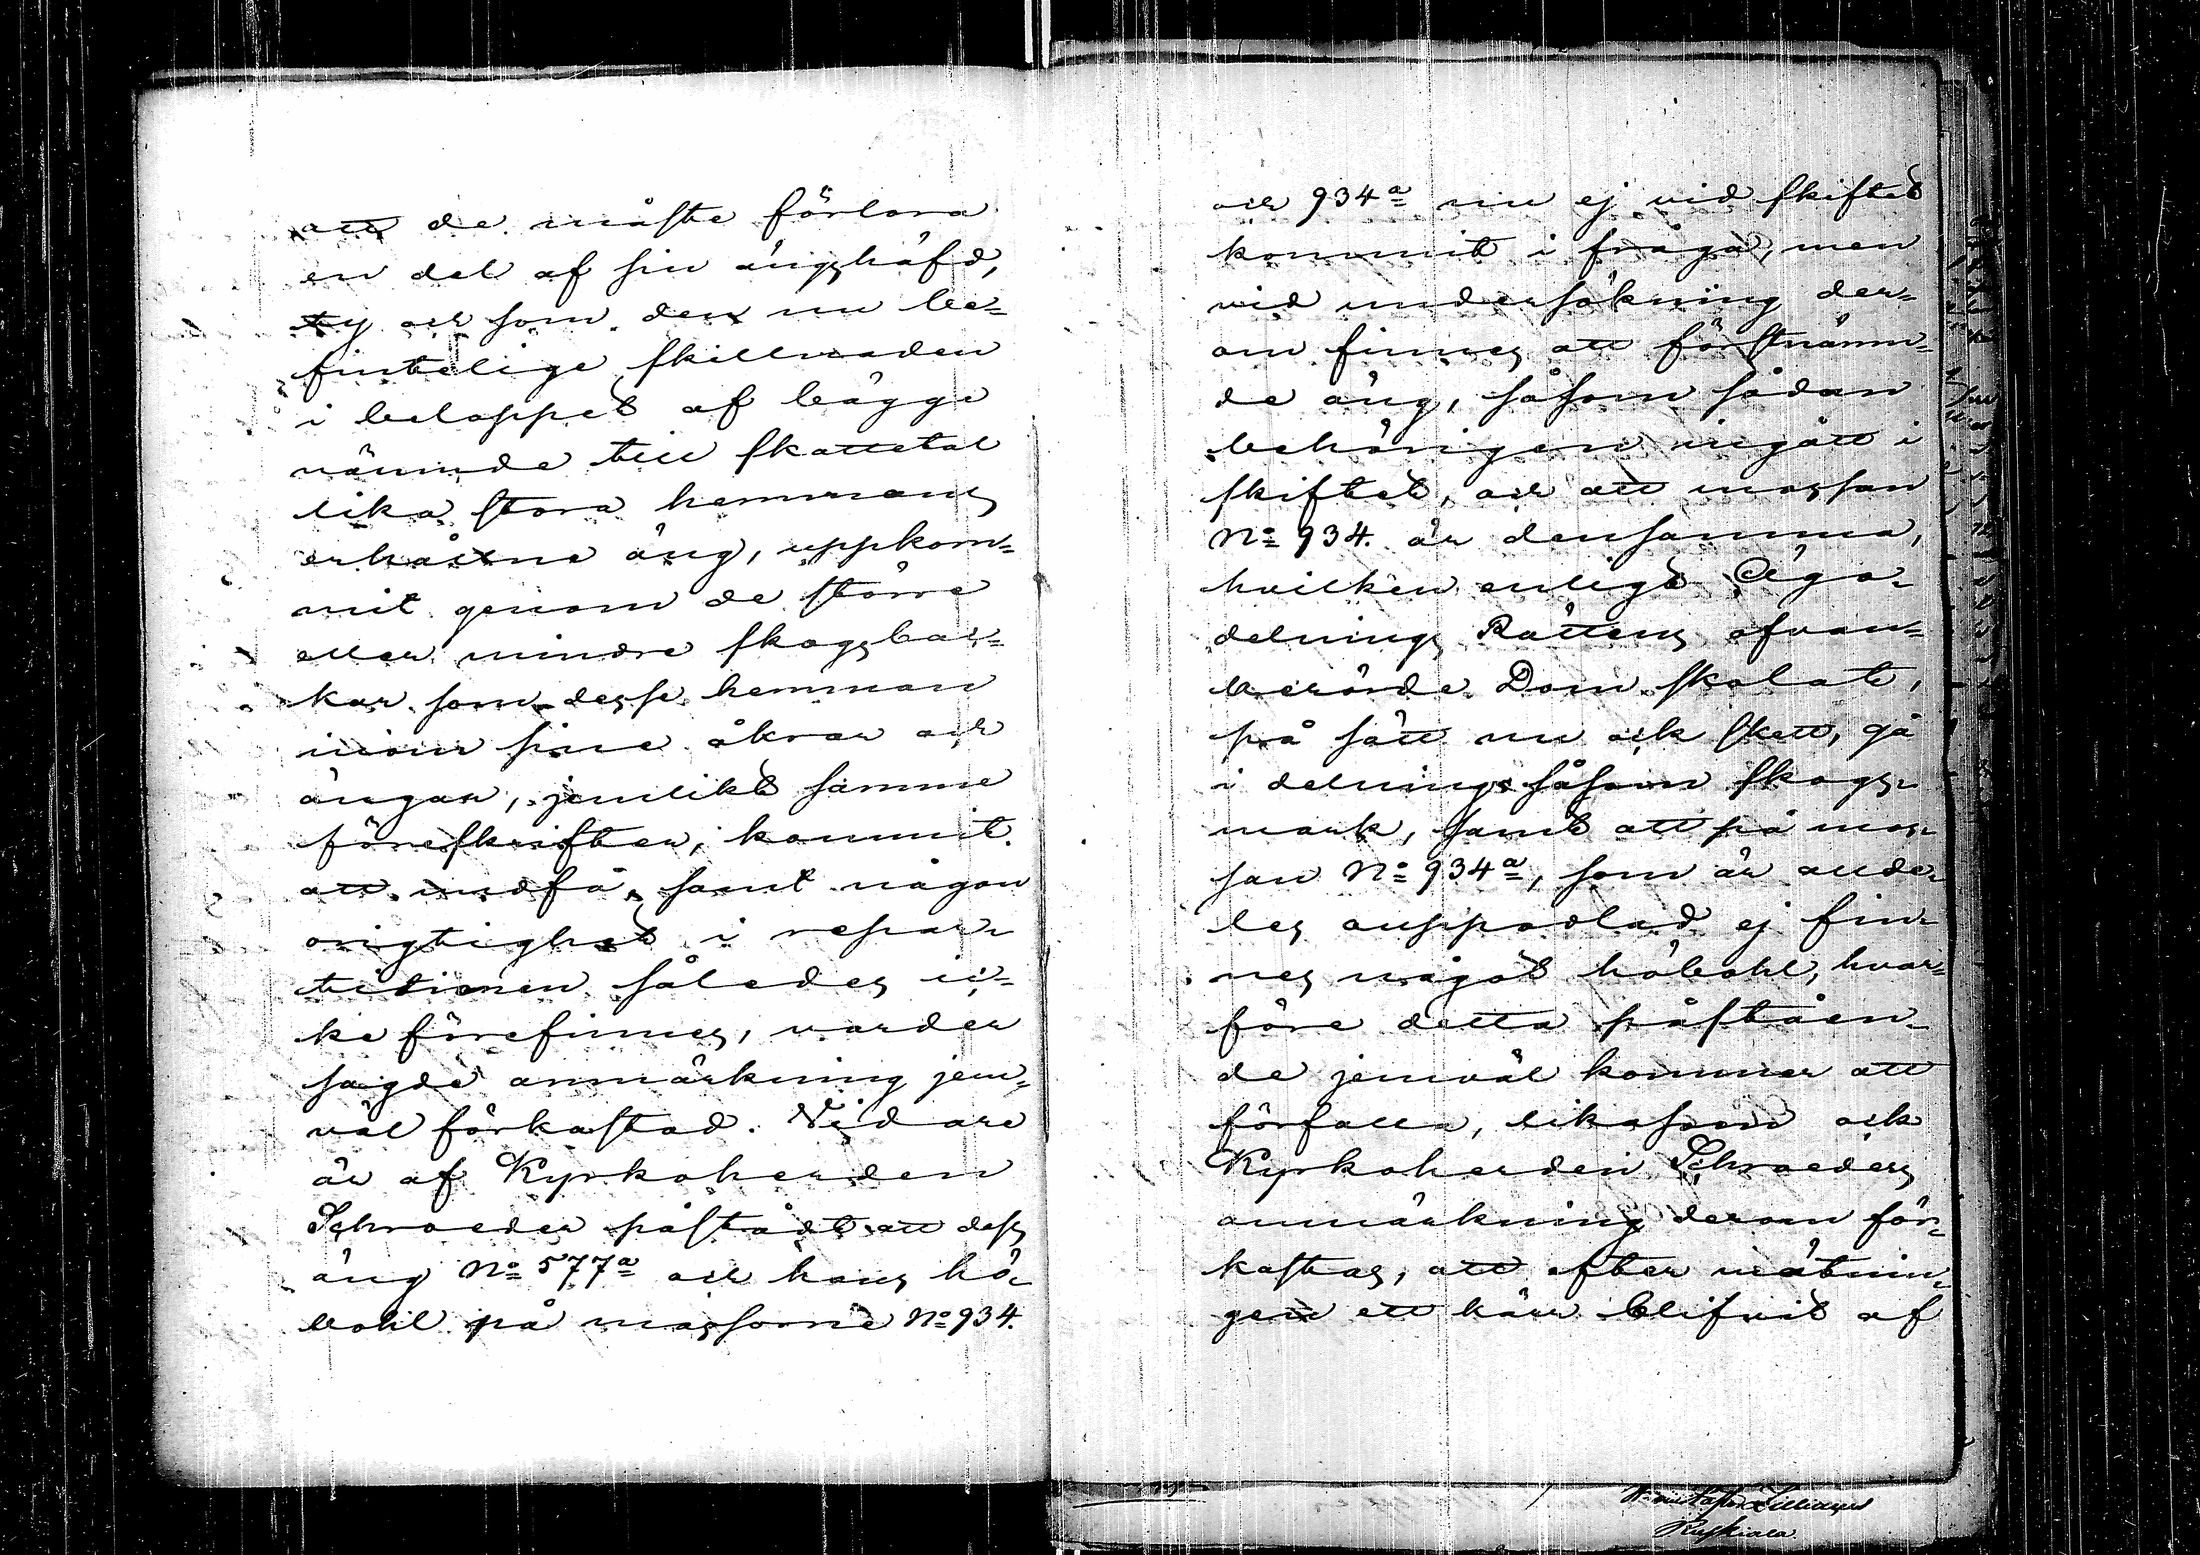 att de måste förlora
en del af sin ängshäfd,
ty och som den nu be-
fintelige skillnaden
i beloppet af bägge
nämnde till skattetal
lika stora hemmans
erhållne äng, uppkom-
mit genom de större
eller mindre skogsbac-
kar som desse hemman
inom sine åkrar och
ängar, jemlikt samme
föreskrifter, kommit
att undfå, samt någon
origtighet i repar-
titionen således ic-
ke förefinnes, varder
sagde anmärkning jem-
väl förkastad. Vidare
är af Kyrkoherden
Schroeder påstådt att dess
äng No 577a och hans hö-
bohl på mossorne No 934.
och 934a nu ej vid skiftet
kommit i fråga, men
vid undersökning der-
om finnes att förstnämn-
de äng, såsom sådan
behörigen ingått i
skiftet, och att mossan
No 934. är densamma,
hvilken enligt Ägo-
delnings Rättens ofvan-
berörde Dom skolat,
på sätt nu ock skett, gå
i delning såsom skogs-
mark, samt att på mos-
san No 934a, som är allde-
les ouppodlad ej fin-
nes något höbohl, hvar-
före detta påståen-
de jemväl kommer att
förfalla, likasom ock
Kyrkoherden Schroeders
anmärkning derom för-
kastas, att efter mätnin-
gen ett kärr blifvit af
Ruskiala